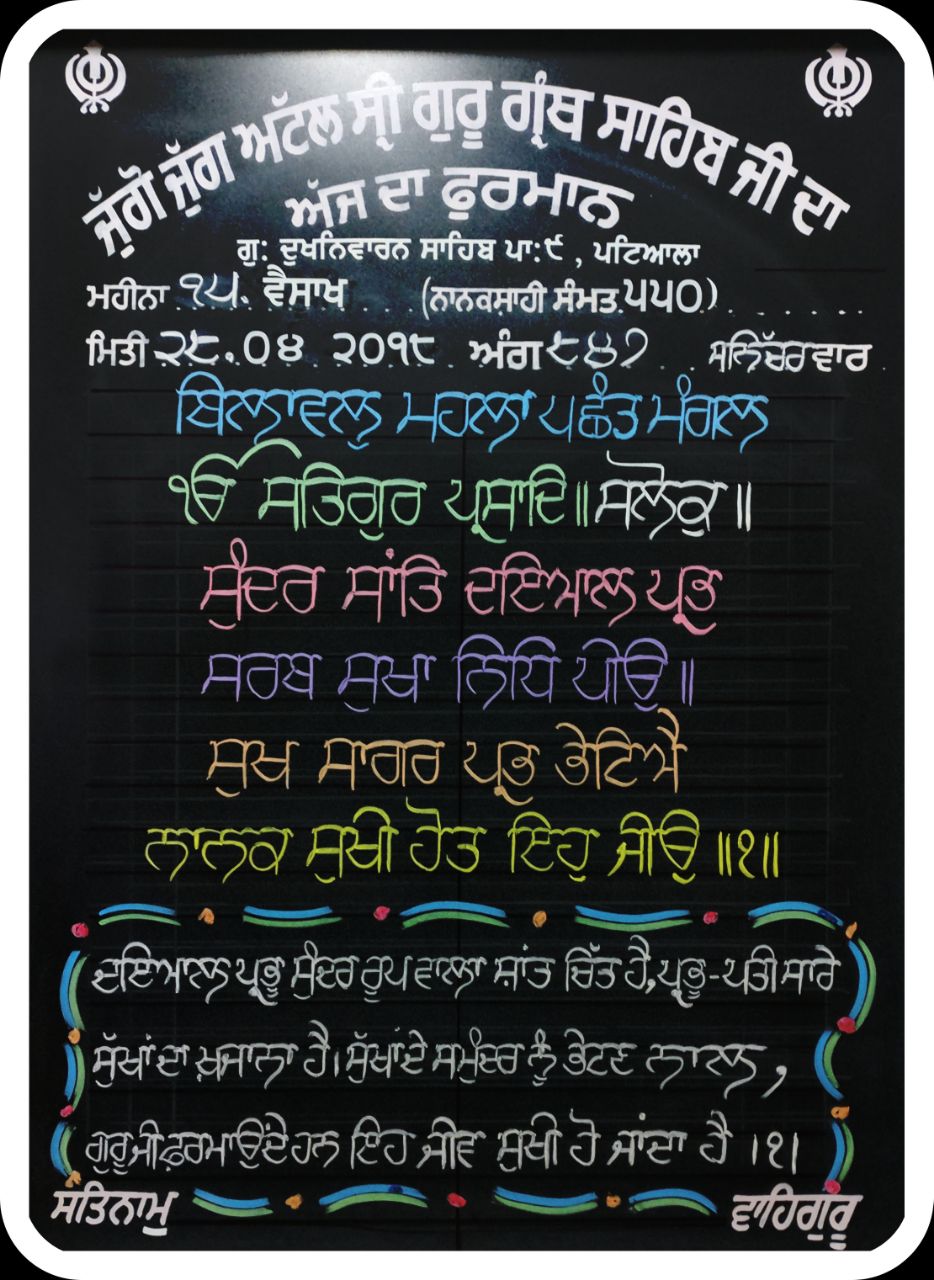 ਜੁੱਗੋ ਜੁੱਗ ਅਟੱਲ ਸ੍ਰੀ ਗੁਰੂ ਗ੍ਰੰਥ ਸਾਹਿਬ ਜੀ ਦਾ
ਅੱਜ ਦਾ ਫੁਰਮਾਨ
ਗੁ: ਦੁਖਨਿਵਾਰਨ ਸਾਹਿਬ ਪਾ:੯ , ਪਟਿਆਲਾ
ਮਹੀਨਾ ੧੫. ਵੈਸਾਖ (ਨਾਨਕਸ਼ਾਹੀ ਸੰਮਤ ੫੫੦)
ਮਿਤੀ ੨੮.੦੪ ੨੦੧੮ ਅੰਗ ੮੪੭ ਸਨਿੱਚਰਵਾਰ
ਬਿਲਾਵਲੁ ਮਹਲਾ ੫ ਛੰਤ ਮੰਗਲ
ੴ ਸਤਿਗੁਰ ਪ੍ਰਸਾਦਿ॥ ਸਲੋਕੁ ॥
ਸੁੰਦਰ ਸਾਂਤਿ ਦਇਆਲ ਪ੍ਰਭ
ਸਰਬ ਸੁਖਾ ਨਿਧਿ ਪੀਉ॥
ਸੁਖ ਸਾਗਰ ਪ੍ਰਭ ਭੇਟਿਐ
ਨਾਨਕ ਸੁਖੀ ਹੋਤ ਇਹੁ ਜੀਉ ॥੧॥
ਦਇਆਲ ਪ੍ਰਭੂ ਸੁੰਦਰ ਰੂਪ ਵਾਲਾ ਸ਼ਾਂਤ ਚਿੱਤ ਹੈ, ਪ੍ਰਭੂ-ਪਤੀ ਸਾਰੇ
ਸੁੱਖਾਂ ਦਾ ਖ਼ਜਾਨਾ ਹੈ। ਸੁੱਖਾਂ ਦੇ ਸਮੁੰਦਰ ਨੂੰ ਭੇਟਣ ਨਾਲ,
ਗੁਰੂ ਜੀ ਫ਼ਰਮਾਉਂਦੇ ਹਨ ਇਹ ਜੀਵ ਸੁਖੀ ਹੋ ਜਾਂਦਾ ਹੈ ।੧।
ਸਤਿਨਾਮੁ ਵਾਹਿਗੁਰੂ